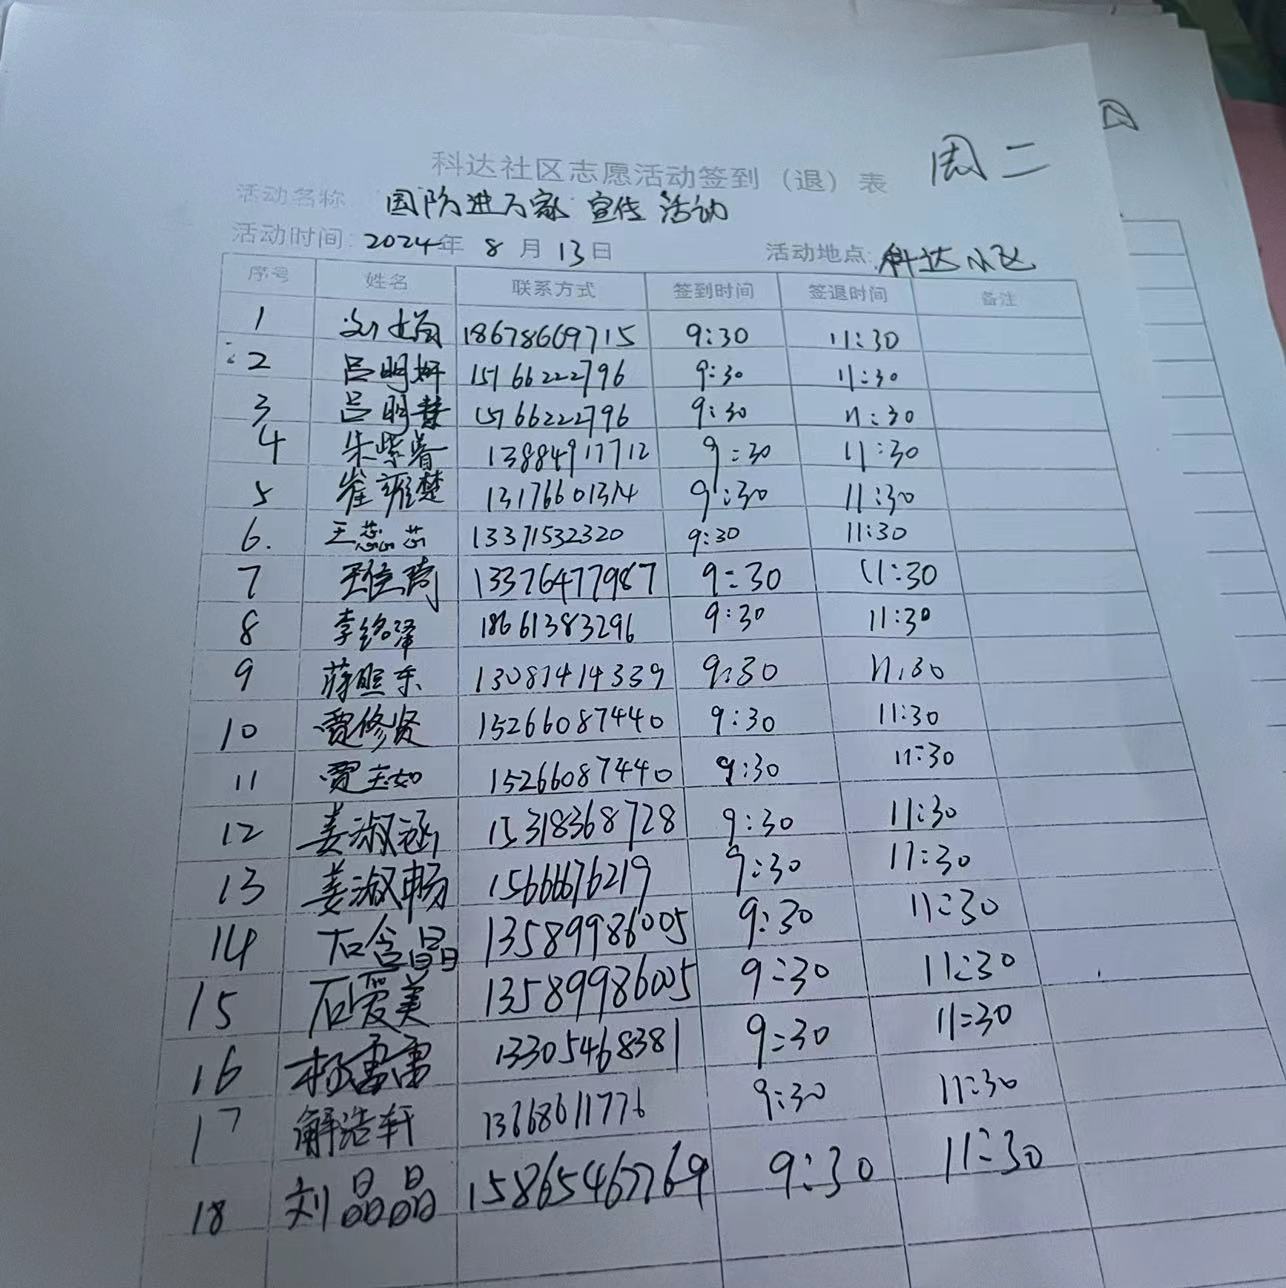 周二
科达社区志愿活动签到（退）表
活动名称 国防进万家 宣传 活动
活动时间：2024年 8 月 13日 活动地点：科达小区
序号 姓名 联系方式 签到时间 签退时间 备注
1 刘 18678669715 9:30 11:30
2 吕明妍 15166222796 9:30 11:30
3 吕明慧 15166222796 9:30 11:30
4 朱紫睿 13884917712 9:30 11:30
5 崔雅楚 9:30 11:30
6. 王蕊芯 13371532320 9:30 11:30
7 13376477987 9:30 11:30
8 李铭泽 18661383296 9:30 11:30
9 蒋熙乐 13087414339 9:30 11:30
10 贾修贤 15266087440 9:30 11:30
11 贾玉如 15266087440 9:30 11:30
12 姜淑涵 15318368728 9:30 11:30
13 姜淑畅 15666676219 9:30 11:30
14 石含晶 13589986005 9:30 11:30
15 石爱美 13589986005 9:30 11:30
16 杨雷雷 13305468381 9:30 11:30
17 解浩轩 13768611776 9:30 11:30
18 刘晶晶 15865467769 9:30 11:30